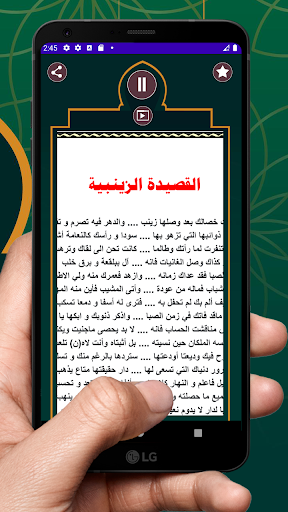 2:45
القصيدة الزينبية
خصالك بعد وصلها زينب .... والدهر فيه تصرم و
ذوائبها التي تزهو بها .... سودا و رأسك كالنعامة أش
تنفرت لما رأتك وطالما .... كانت تحن الى لقاك وترهب
وكذاك وصل الغانيات فانه .... آل ببلقعة و برق خلب
صبا فقد عداك زمانه .... وازهد فعمرك منه ولى الاط
شباب فماله من عودة .... وأتى المشيب فأين منه الم
ف ألم بك لم تحفل به .... فترى له أسفا و دمعا تسكب
ك ما قد فات في زمن الصبا .... واذكر ذنوبك و ابكها يا
مناقشت الحساب فانه .... لا بد يحصى ماجنيت ويكتب
سه الملكان حين نسيته .... بل أثبتاه وأنت لاه(ن) تلع
ح فيك وديعا أودعتها .... ستردها بالرغم منك و
رور دنياك التي تسعى لها .... دار حقيقتها متاع يذهب
ل فاعلم و النهار كلا
ميع ما حصلته و
ا لدار لا يدوم نعي
LG